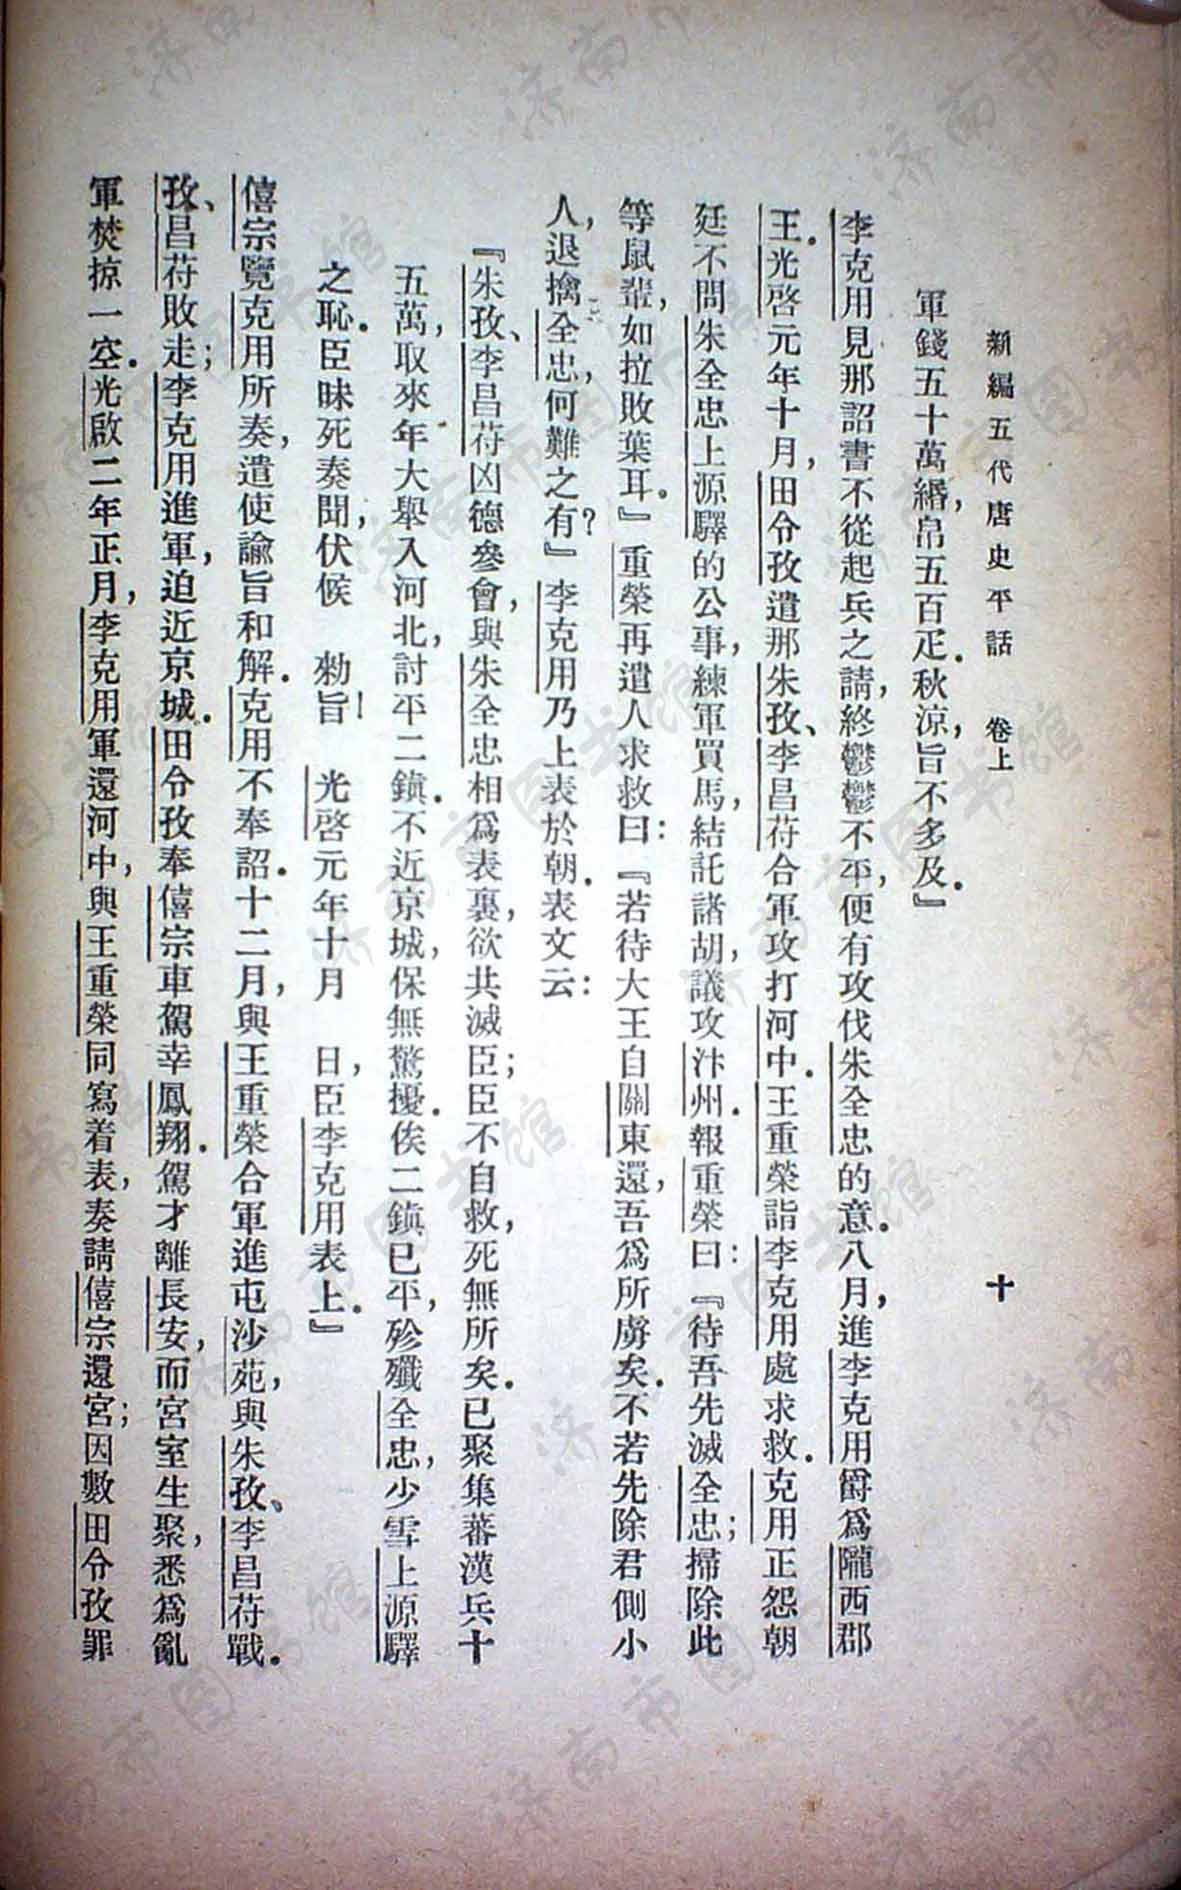 新編五代唐史平話　卷上　十
軍錢五十萬緡，帛五百疋．秋涼，旨不多及．』
李克用見那詔書不從起兵之請，終鬱鬱不平，便有攻伐朱全忠的意．八月，進李克用爵爲隴西郡
王．光啓元年十月，田令孜遣那朱孜、李昌苻合軍攻打河中．王重榮詣李克用處求救．克用正怨朝
廷不問朱全忠上源驛的公事，練軍買馬，結託諸胡，議攻汴州．報重榮曰：『待吾先滅全忠；掃除此
等鼠輩，如拉敗葉耳．』重榮再遣人求救曰：『若待大王自關東還，吾爲所虜矣．不若先除君側小
人，退擒全忠，何難之有？』李克用乃上表於朝．表文云：
『朱孜、李昌苻凶德參會，與朱全忠相爲表裏，欲共滅臣；臣不自救，死無所矣．已聚集蕃漢兵十
五萬，取來年大舉入河北，討平二鎮．不近京城，保無驚擾．俟二鎮已平，殄殲全忠，少雪上源驛
之恥．臣昧死奏聞，伏候　勑旨！　光啓元年十月　日，臣李克用表上．』
僖宗覽克用所奏，遣使諭旨和解．克用不奉詔．十二月，與王重榮合軍進屯沙苑，與朱孜、李昌苻戰．
孜、昌苻敗走；李克用進軍，迫近京城．田令孜奉僖宗車駕幸鳳翔．駕才離長安，而宮室生聚，悉爲亂
軍焚掠一空．光啟二年正月，李克用軍還河中，與王重榮同寫着表，奏請僖宗還宮；因數田令孜罪
济南市图书馆